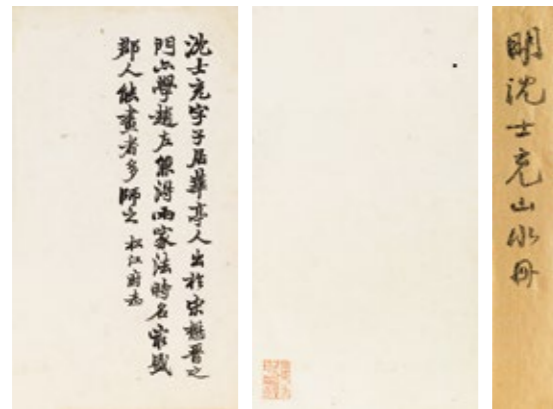 沈士充字子居華亭人出於宋懋晋之
門亦學趙左兼得兩家法時名宷盛
郡人能畫者多師之 松江府志
明沈士充山水册